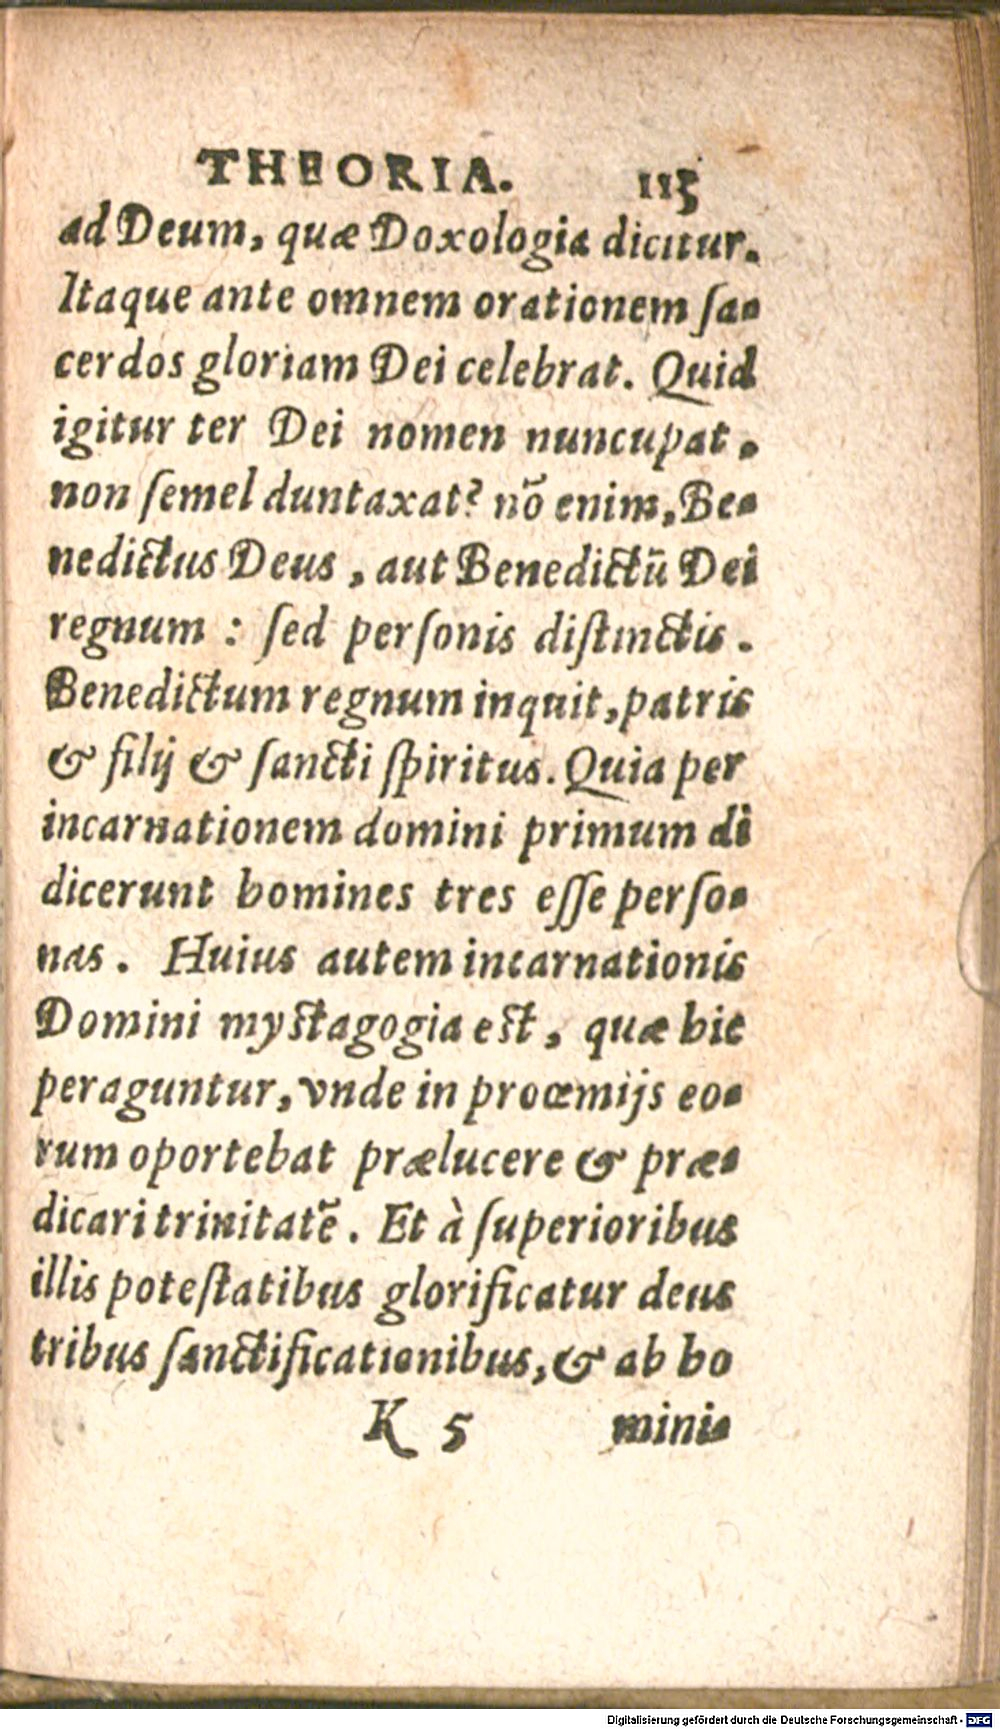 THEORIA. 115
ad Deum, quæ Doxologia dicitur.
Itaque ante omnem orationem ſa-
cerdos gloriam Dei celebrat. Quid
igitur ter Dei nomen nuncupat,
non ſemel duntaxat? nõ enim, Be-
nedictus Deus, aut Benedictũ Dei
regnum : ſed perſonis diſtinctis.
Benedictum regnum inquit, patris
& filij & ſancti ſpiritus. Quia per
incarnationem domini primum di
dicerunt homines tres eſſe perſo-
nas. Huius autem incarnationis
Domini mystagogia est, quæ hic
peraguntur, vnde in proœmijs eo-
rum oportebat prælucere & præ-
dicari trinitatẽ. Et à ſuperioribus
illis poteſtatibus glorificatur deus
tribus ſanctificationibus, & ab ho
K 5 mini-
Digitalisierung gefördert durch die Deutsche Forschungsgemeinschaft - DFG